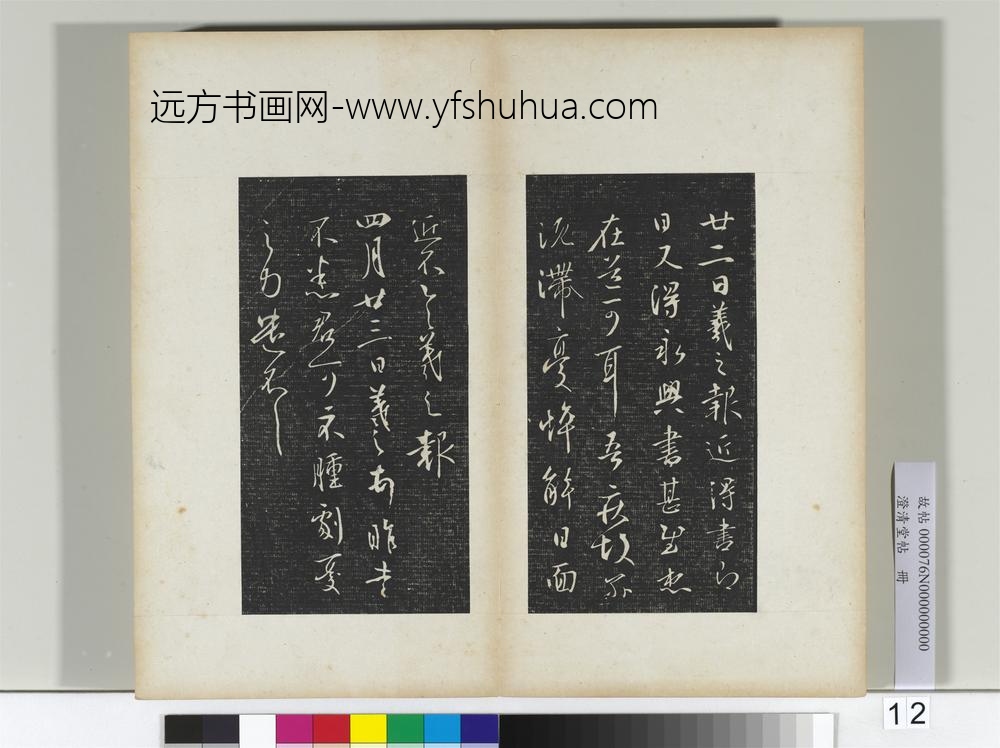 远方书画网-www.yfshuhua.com
廿二日羲之報近得書即
日又得永興書甚慰想
在道可耳吾疾故爾
沉滯憂悴解日面
近不具羲之報
四月廿三日羲之昨書
不悉君可不腫劇憂
之力遣不
故帖 000076N000000000
澄清堂帖 冊
12